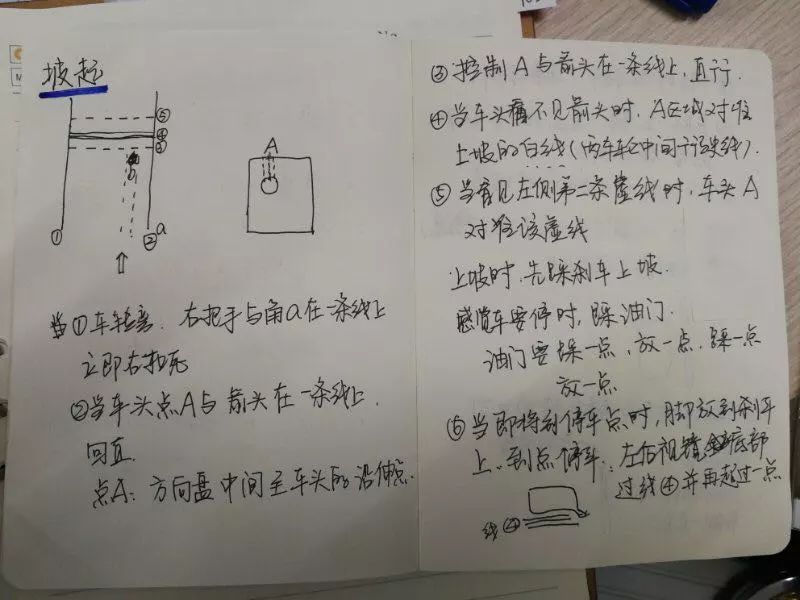 坡起
⑤
④
③
①
② a
A
当①车轮 右把手与角a在一条线上
立即右打死
②当车头点A与箭头在一条线上.
回直
点A: 方向盘中间至车头的沿伸点.
③控制A与箭头在一条线上,直行.
④当车头 不见箭头时, A区域对准
上坡的白线(两车轮中间 线).
⑤当看见左侧第二条虚线时,车头A
对准该虚线
上坡时,先踩刹车上坡.
感觉车要停时,踩油门.
油门要踩一点,放一点,踩一点
放一点
⑥当即将到停车点时,脚放到刹车
上,到点停车: 左后视镜 底部
过线④并再超过一点
线④